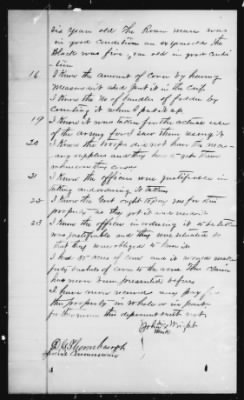 six years old The Roan mare was
in good condition an expensive The
Black was five, in good condi
tion
16 I know the amount of Corn by having
measured it and put it in the Crib
I know the No of bundles of fodder by
counting it when I put it up
19 I know it was taken for the actual use
of the army for I saw them using it
20 I know the troops did not have to
any supplies as they have to get them
wherever they could
21 I know the officers was justifiable in
taking and ordering it taken
22 I know the Govt ought to pay me for this
property as they got it and used it
23 I know the officer in ordering it to be taken
was justifiable and they were situated so
that they was obliged to have it
I had 25 acres of corn and it would make
forty bushels of corn to the acre This claim
has never been presented before
I have never received any pay for
this property in whole or in part
further this deponent saith not
John Wright
mark
Thornbaugh
Special Commissioner